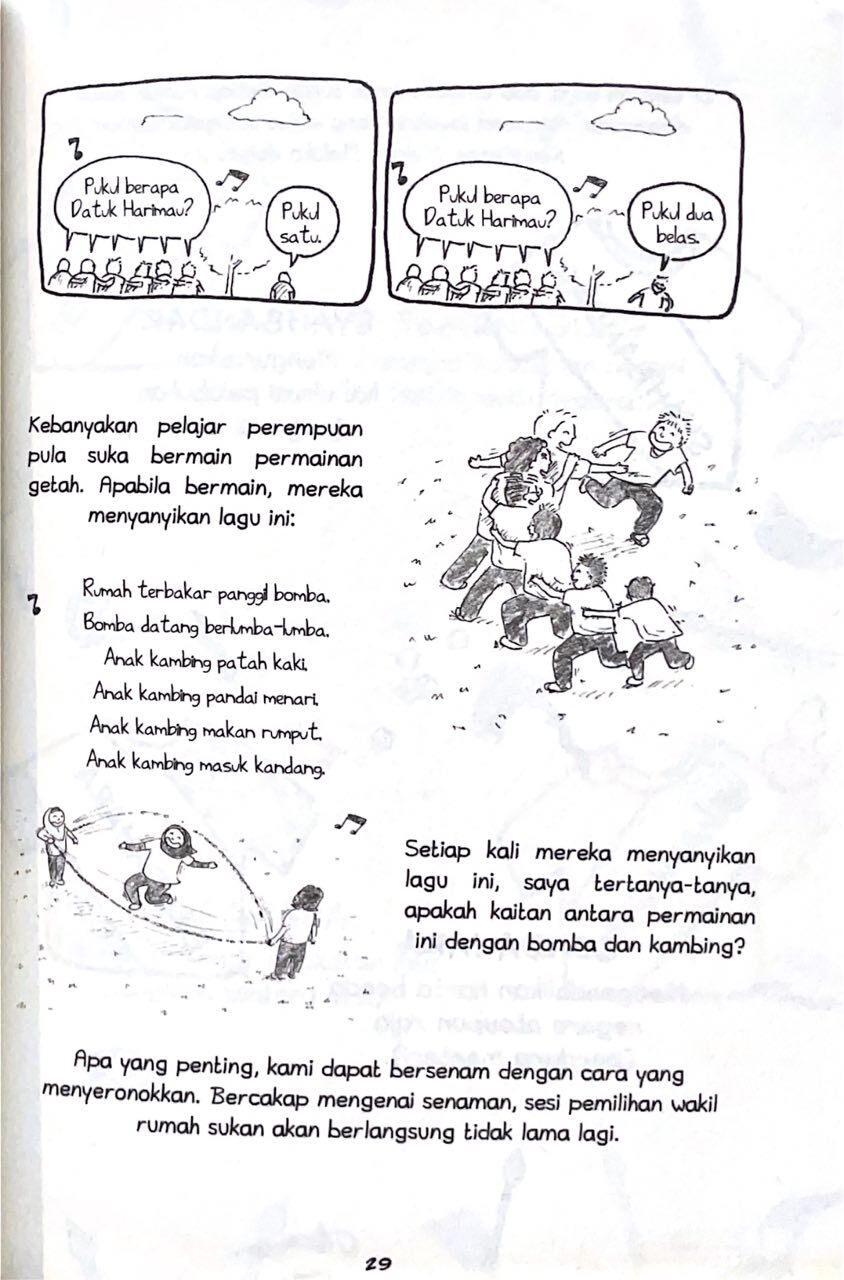 Pukul berapa
Datuk Harimau?
Pukul
satu.
Pukul berapa
Datuk Harimau?
Pukul dua
belas.
Kebanyakan pelajar perempuan
pula suka bermain permainan
getah. Apabila bermain, mereka
menyanyikan lagu ini:
Rumah terbakar panggil bomba.
Bomba datang berlumba-lumba.
Anak kambing patah kaki.
Anak kambing pandai menari.
Anak kambing makan rumput.
Anak kambing masuk kandang.
Setiap kali mereka menyanyikan
lagu ini, saya tertanya-tanya,
apakah kaitan antara permainan
ini dengan bomba dan kambing?
Apa yang penting, kami dapat bersenam dengan cara yang
menyeronokkan. Bercakap mengenai senaman, sesi pemilihan wakil
rumah sukan akan berlangsung tidak lama lagi.
29